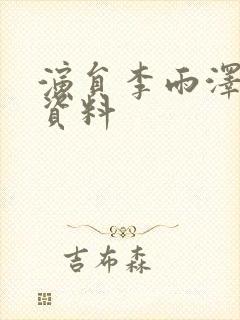 演員李雨澤
資料
吉布森